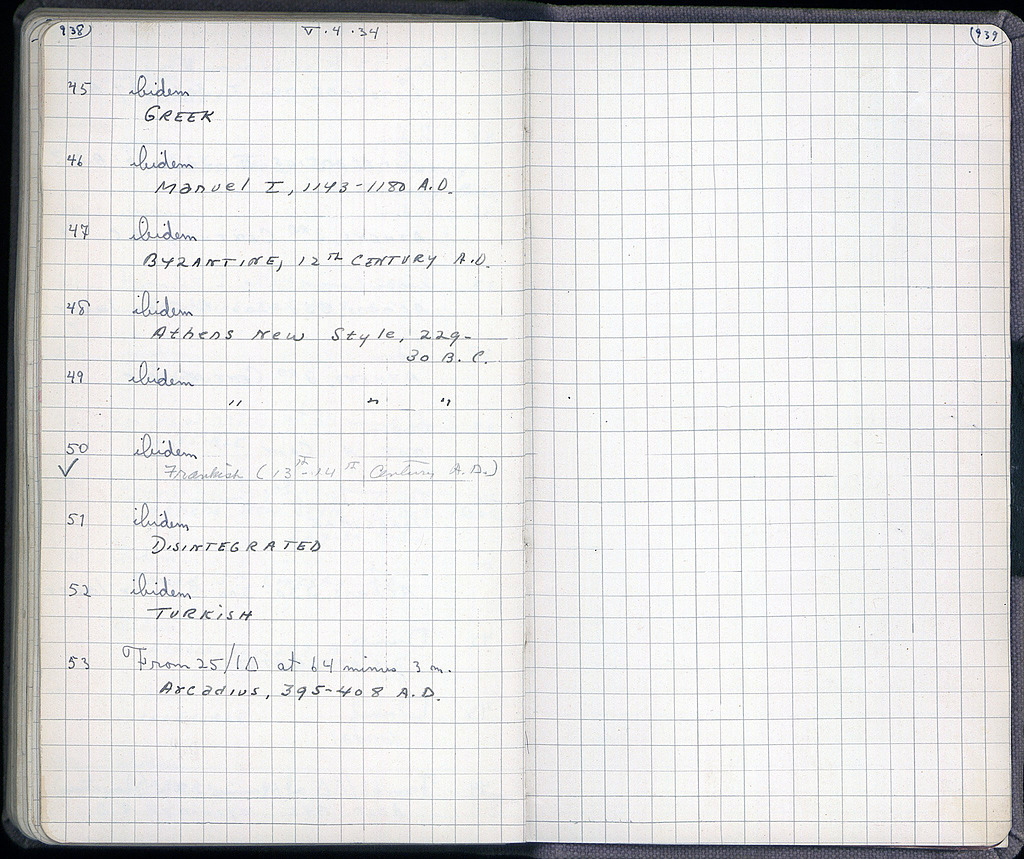 938
V·4·34
939
45 ibidem
GREEK
46 ibidem
Manuel I, 1143-1180 A.D.
47 ibidem
BYZANTINE, 12TH CENTURY A.D.
48 ibidem
Athens New Style, 229-
30 B.C.
49 ibidem
" " "
50 ibidem
✓ Frankish (13TH-14TH Century A.D.)
51 ibidem
DISINTEGRATED
52 ibidem
TURKISH
53 From 25/ΙΔ at 64 minus 3 m.
Arcadius, 395-408 A.D.